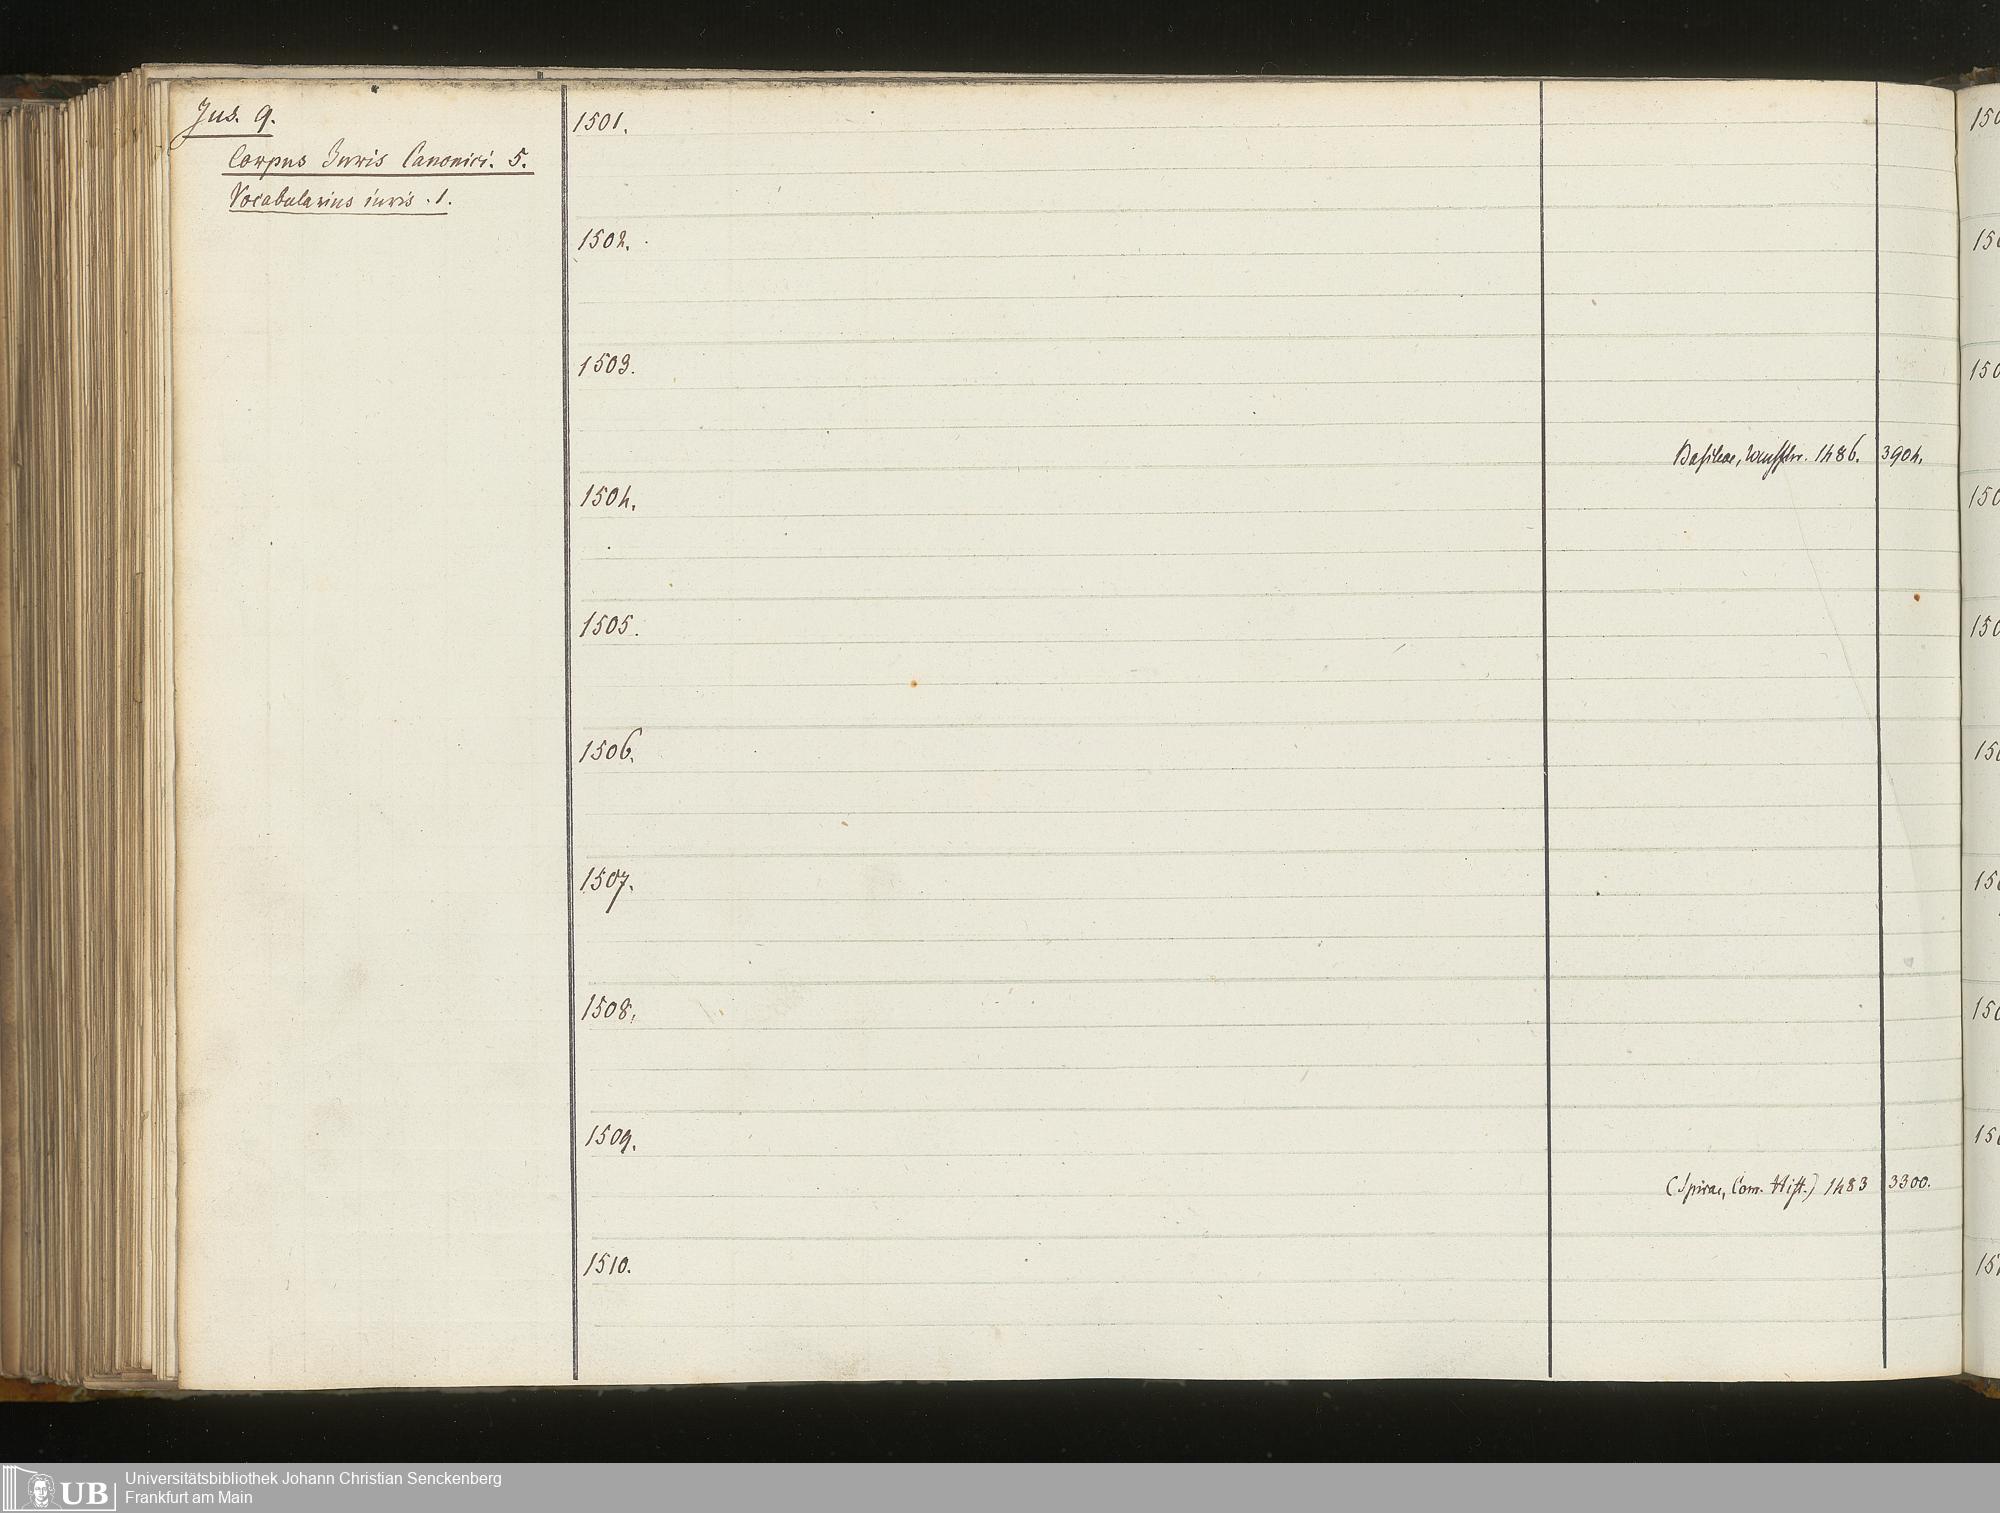 Jus. 9.
Corpus Juris Canonici. 5.
Vocabularius iuris. 1.
1501.
1502.
1503.
Basileae, 1486. 3904.
1504.
1505.
1506.
1507.
1508.
1509.
(Spirae, Com. Hist.) 1483 3300.
1510.
150
150
150
150
150
150
150
150
150
151
UB
Universitätsbibliothek Johann Christian Senckenberg
Frankfurt am Main